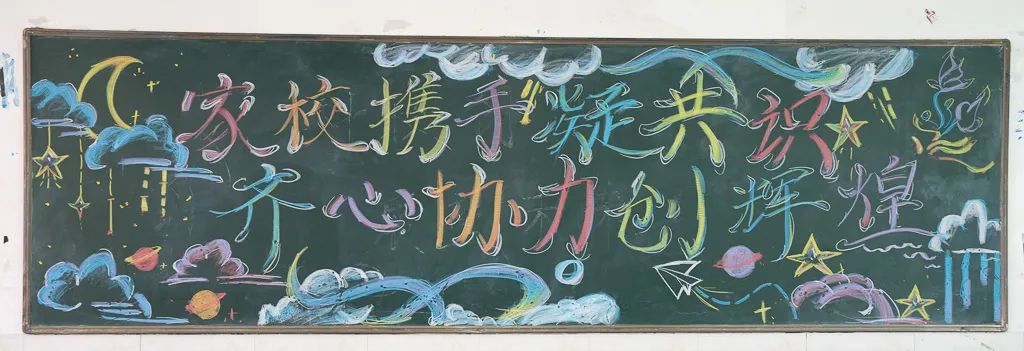 家校携手凝共识
齐心协力创辉煌